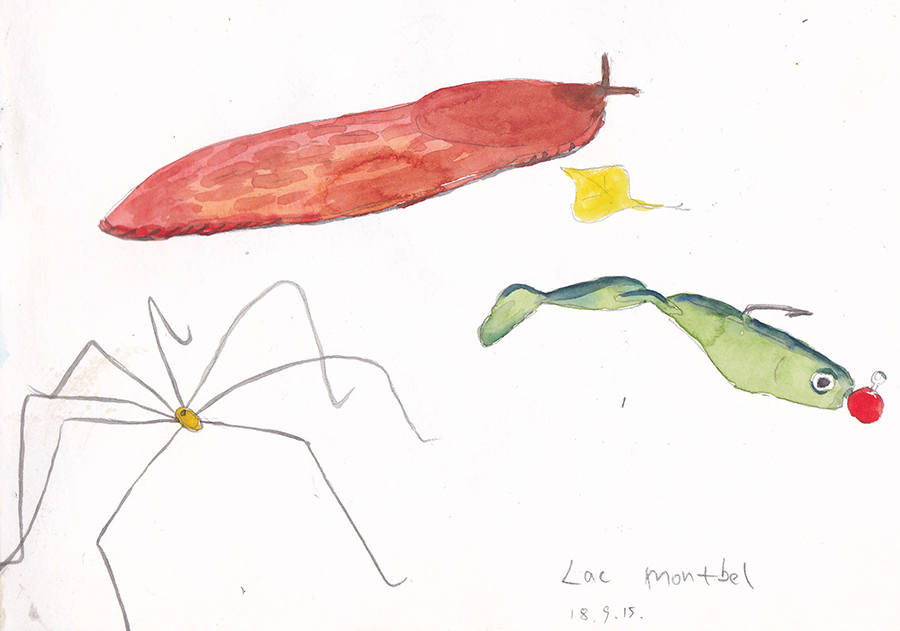 Lac montbel
18.9.15.